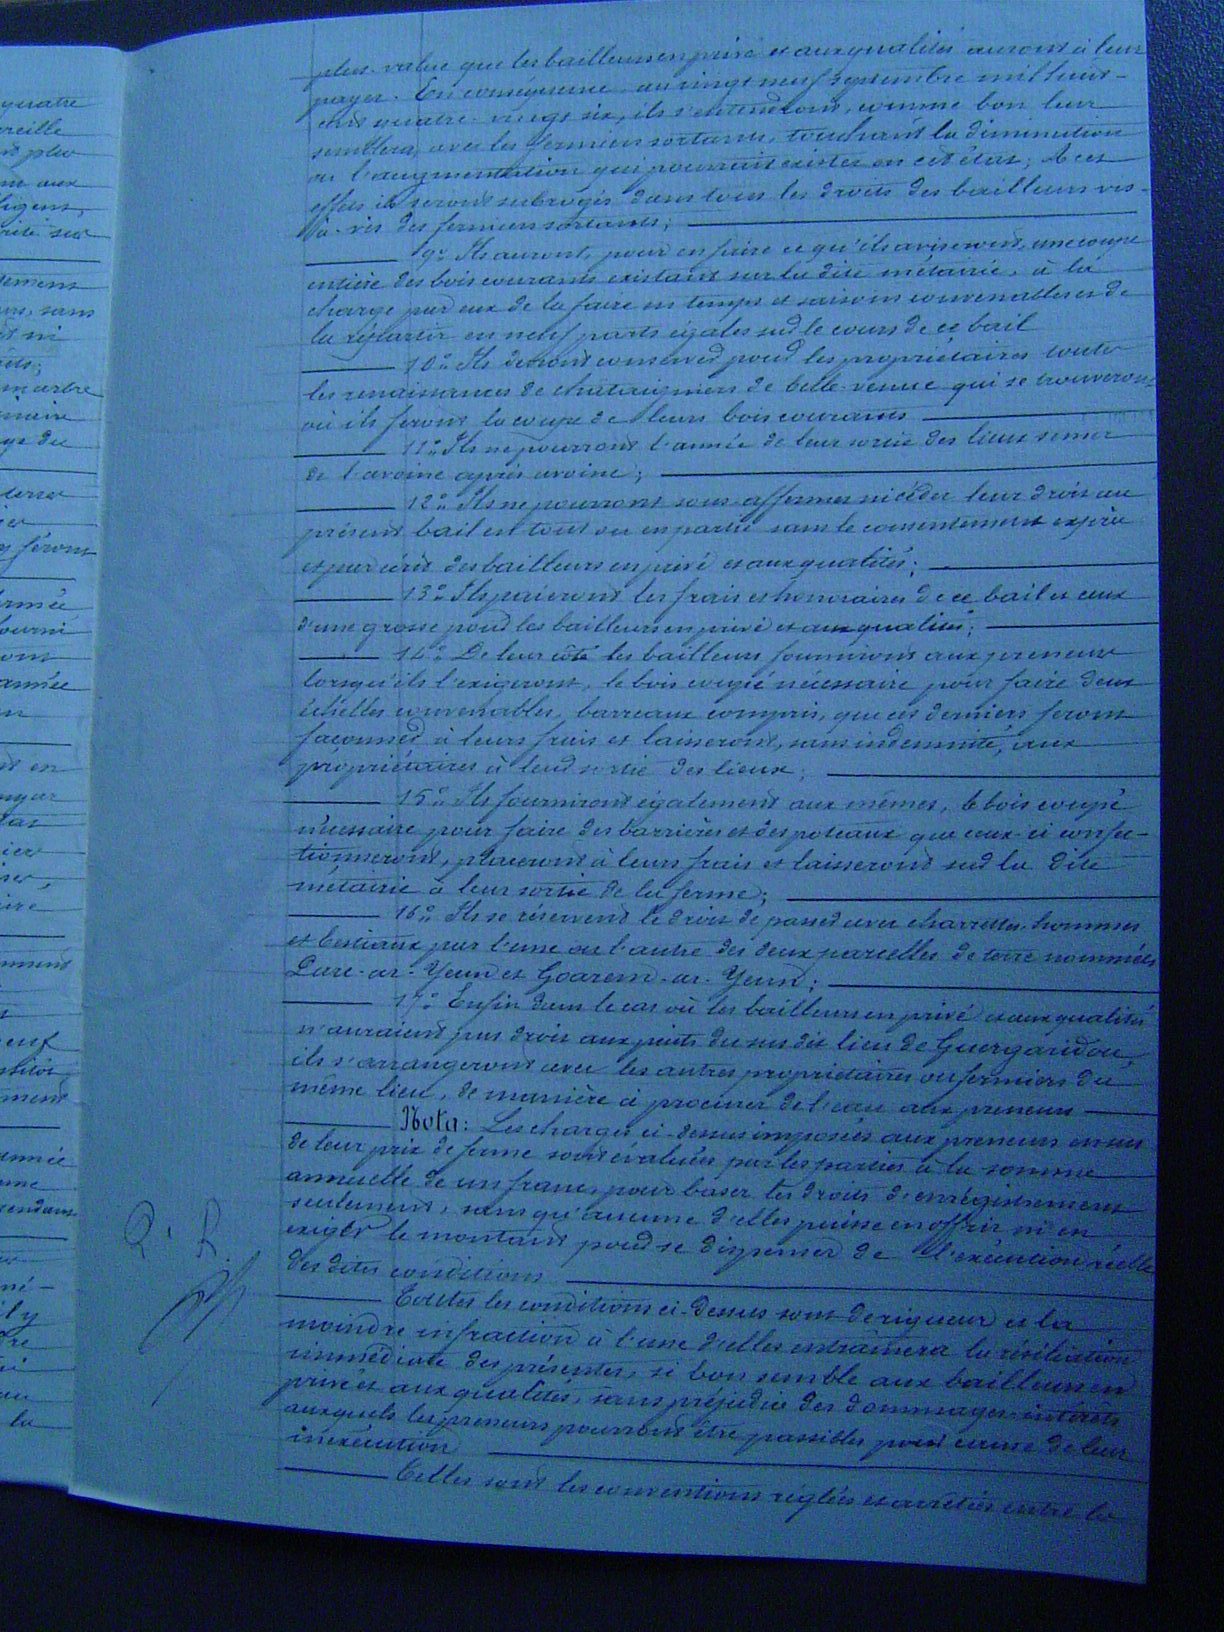 quatre
pareille
plus
aux
ni
marbre
du
feront
fourni
année
en
neuf
année
lendam
la
plus-value que les bailleurs en privé et aux qualités auront à leur
payer. En conséquence au vingt neuf septembre mil huit-
cent quatre-vingt six, ils s'entendront, comme bon leur
semblera, avec les fermiers sortants, touchant la diminution
ou l'augmentation qui pourrait exister en cet état; A cet
effet ils seront subrogés dans tous les droits des bailleurs vis-
à-vis des fermiers sortants;
9º Ils auront, pour en faire ce qu'ils aviseront, une coupe
entière des bois courants existant sur la dite métairie, à la
charge par eux de la faire en temps et saisons convenables et de
la répartir en neuf parts égales sur le cours de ce bail
10º Ils devront conserver pour les propriétaires toutes
les renaissances de châtaigniers de belle-venue qui se trouveront
où ils feront la coupe de leurs bois courants
11º Ils ne pourront l'année de leur sortie des lieux semer
de l'avoine après avoine;
12º Ils ne pourront sous-affermer ni céder leur droit au
présent bail en tout ou en partie sans le consentement exprès
et par écrit des bailleurs en privé et aux qualités;
13º Ils paieront les frais et honoraires de ce bail et ceux
d'une grosse pour les bailleurs en privé et aux qualités;
14º De leur côté les bailleurs fourniront aux preneurs
lorsqu'ils l'exigeront, le bois coupé nécessaire pour faire deux
échelles convenables, barreaux compris, que ces derniers feront
façonner à leurs frais et laisseront, sans indemnité, aux
propriétaires à leur sortie des lieux;
15º Ils fourniront également aux mêmes, le bois coupé
nécessaire pour faire des barrières et des poteaux que ceux-ci confec-
tionneront, placeront à leurs frais et laisseront sur la dite
métairie à leur sortie de la ferme;
16º Ils se réservent le droit de passer avec charrettes, hommes
et bestiaux par l'une ou l'autre des deux parcelles de terre nommées
Parc-ar-Yeun et Goarem-ar-Yeun;
17º Enfin dans le cas où les bailleurs en privé et aux qualités
n'auraient pas droit aux puits du sus dit lieu de Guergaridou
ils s'arrangeront avec les autres propriétaires ou fermiers du
même lieu, de manière à procurer de l'eau aux preneurs
Nota: Les charges ci-dessus imposées aux preneurs en sus
de leur prix de ferme sont évaluées par les parties à la somme
annuelle de un franc, pour baser les droits d'enregistrement
seulement, sans qu'aucune d'elles puisse en offrir ni en
exiger le montant pour se dispenser de l'exécution réelle
des dites conditions
Toutes les conditions ci-dessus sont de rigueur et la
moindre infraction à l'une d'elles entraînera la résiliation
immédiate des présentes, si bon semble aux bailleurs en
privé et aux qualités, sans préjudice des dommages-intérêts
auxquels les preneurs pourront être passibles pour cause de leur
inexécution
Telles sont les conventions réglées et arrêtées entre les